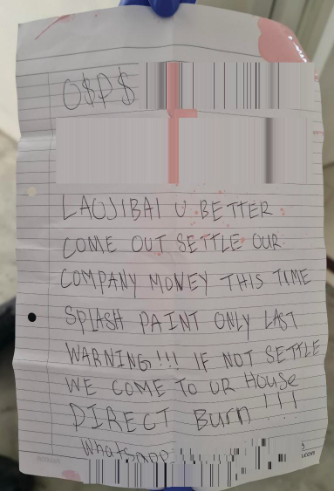 O$P$
LAOJIBAI U BETTER
COME OUT SETTLE OUR
COMPANY MONEY THIS TIME
SPLASH PAINT ONLY LAST
WARNING!!! IF NOT SETTLE
WE COME TO UR HOUSE
DIRECT Burn!!!
Whatsapp